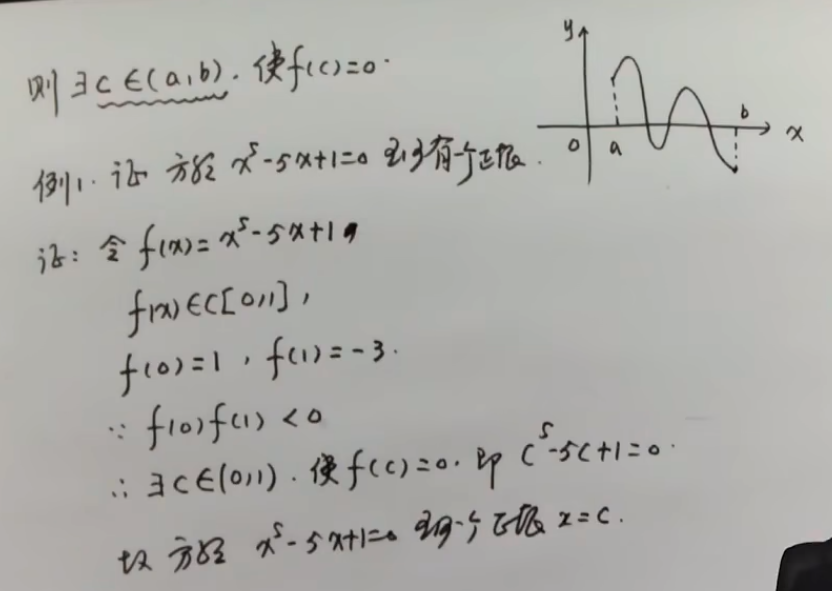 则∃c∈(a,b).使f(c)=0.
例1.证 方程 x⁵-5x+1=0 至少有一个正根.
证:令 f(x)=x⁵-5x+1,
f(x)∈C[0,1],
f(0)=1,f(1)=-3.
∵ f(0)f(1)<0
∴ ∃c∈(0,1).使f(c)=0.即 c⁵-5c+1=0.
故 方程 x⁵-5x+1=0 至少一个正根 x=c.
y
0
a
b
x